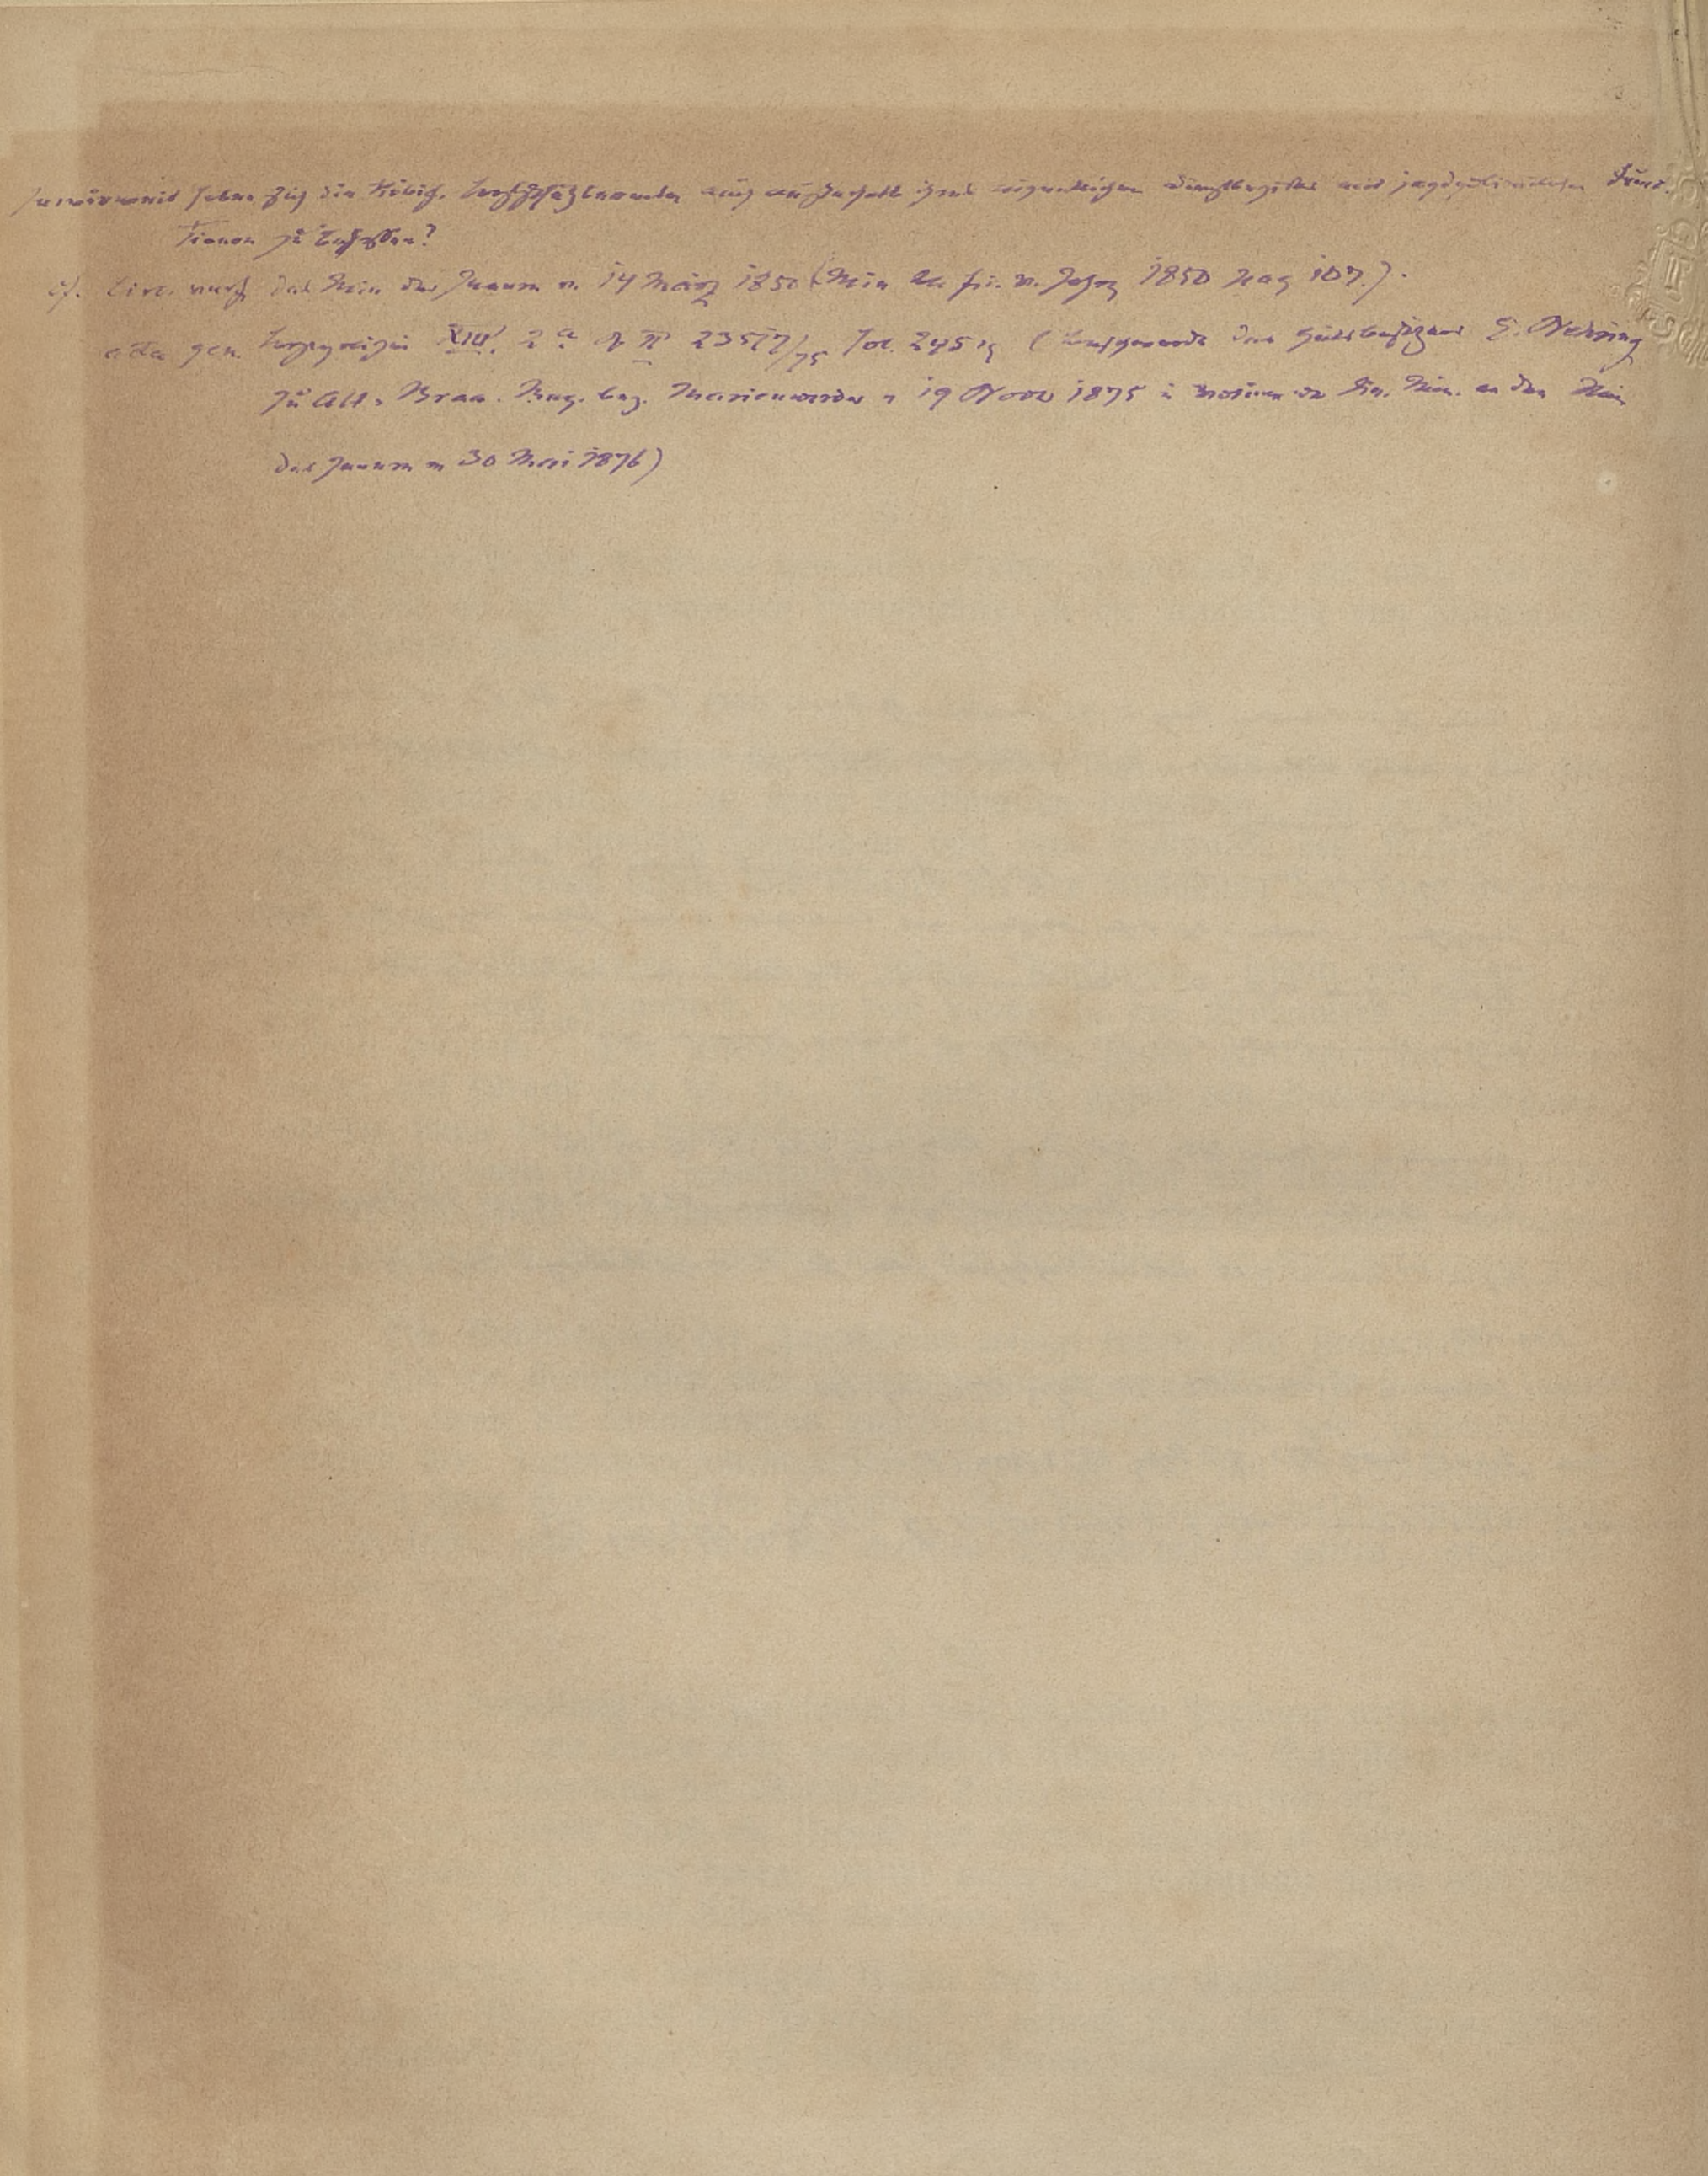 Inwieweit haben sich die Königl. Forstschutzbeamten auch außerhalb ihres eigentlichen Dienstbezirks mit jagdpolizeilichen Func-
tionen zu befassen?
cf. Circ. resc. des Min des Innern v. 14 März 1850 (Min Bl. f. i. V. Jahrg 1850 pag 107.).
acta gen. XIII. 2 a II 23517/75 Fol. 245 (Beschwerde des Gutsbesitzers E. Nehring
zu Alt-Braa. Reg. bez. Marienwerder v 19 Novbr 1875 Fin. Min. an den Min
des Innern v 30 Mai 1876)